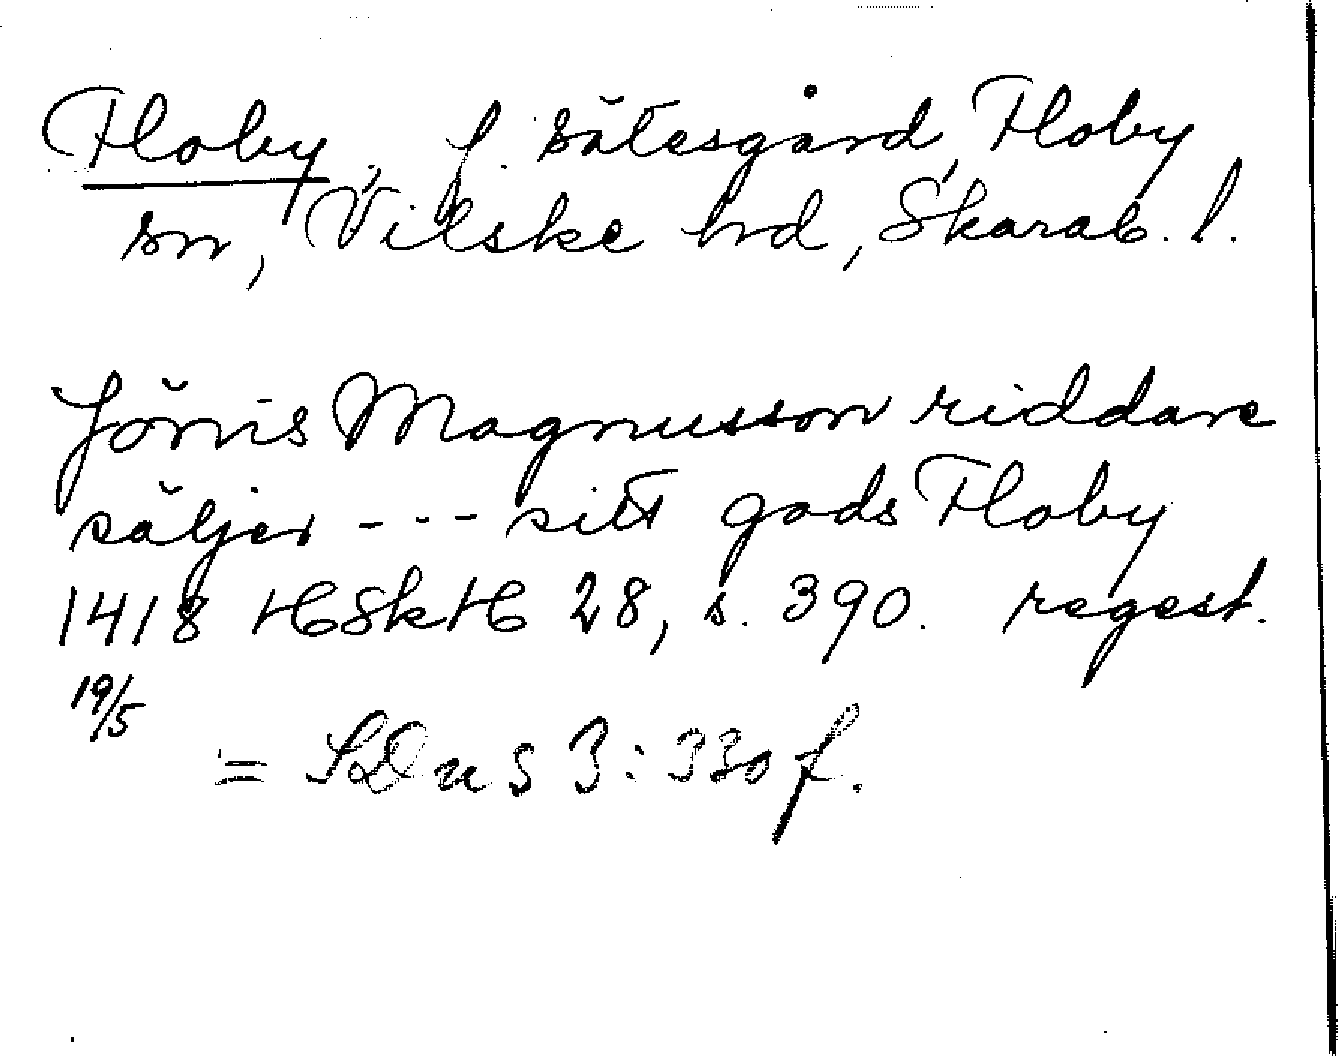 Floby, f. sätesgård, Floby
sn, Vilske hd, Skarab. l.
Jönis Magnusson riddare
säljer --- sitt gods Floby
1418 HSkH 28, s. 390. regest.
19/5
= SDns 3:330 f.